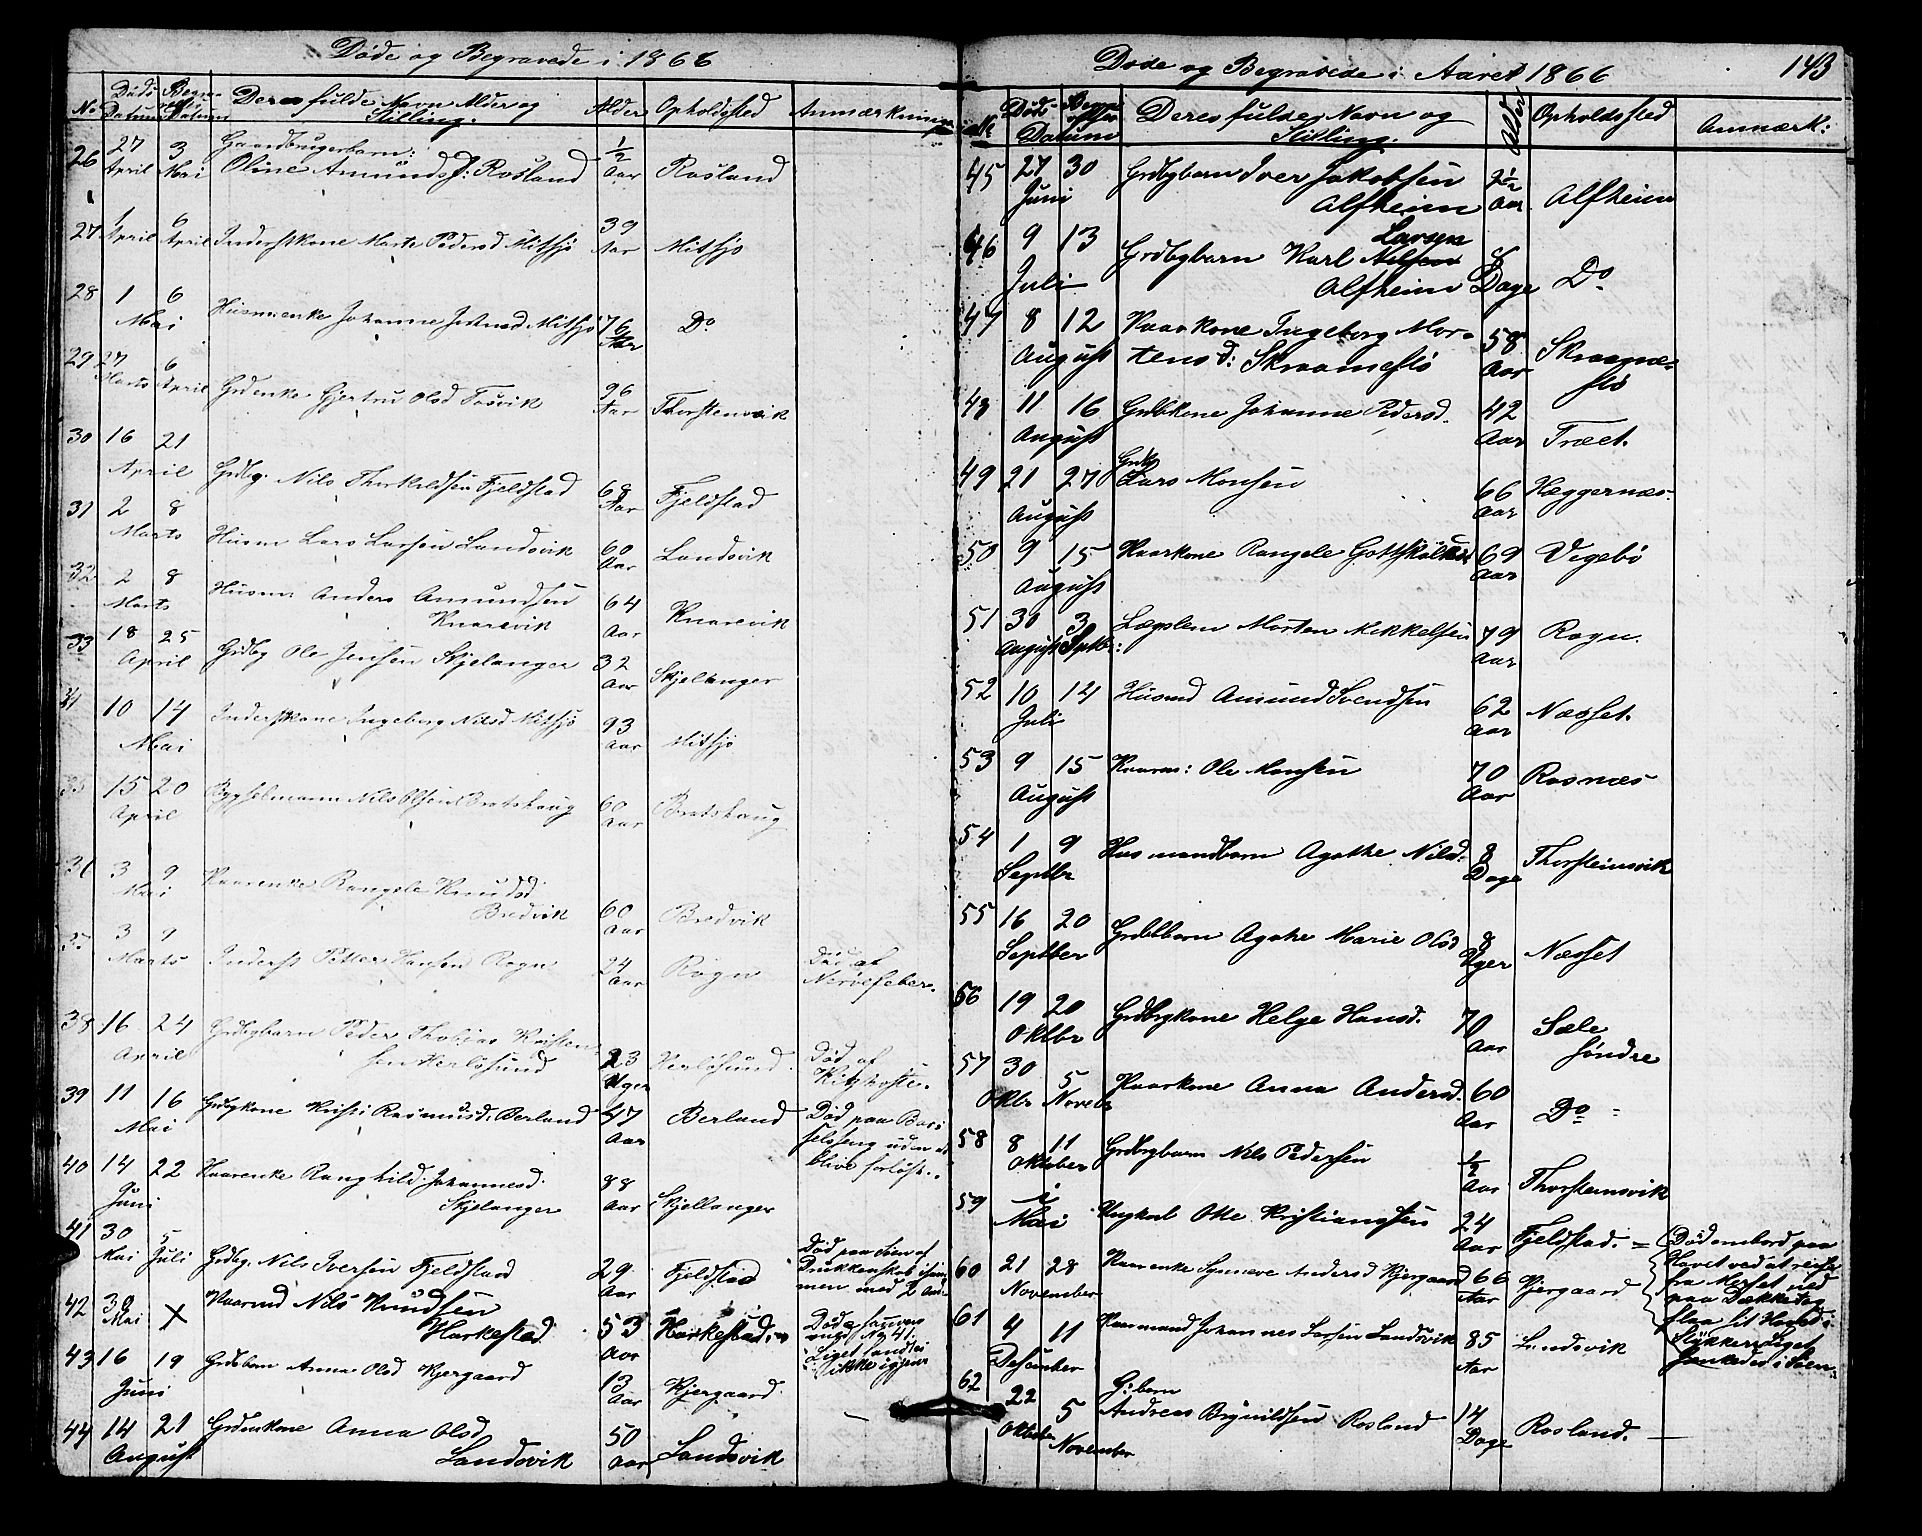 Døde og Begravede i 1866
No Døds Datum Begra- velses Datum Deres fulde Navn Alder og Stilling. Alder Opholdsted Anmærkninger
26 27 April 3 Mai Gaardbrugerbarn: Oline Amunds d: Rosland 1/2 Aar Rosland
27 1 April 6 April Inderstkone Marte Pedersd Mitsjø 39 Aar Mitsjø
28 1 6 Mai Husmenke Johanne Mitsjø 76 Aar Do
29 27 Marts 6 April Grdenke Gjertru Olsd 96 Aar Thorstensvik
30 16 21 April Grdbg. Nils Thorkeldsen Fjeldstad 68 Aar Fjeldstad
31 2 8 Marts Husm Lars Larsen Landsvik 60 Aar Landsvik
32 2 8 Marts Husm Anders Amundsen Knarevik 64 Aar Knarevik
33 18 25 April Grdbg Ole Jensen Skjelanger 32 Aar Skjelanger
34 10 14 Mai Inderstkone Ingeborg Nilsd Mitsjø 93 Aar Mitsjø
35 15 20 April Bygselmann Nils Olsen Bratshaug 60 Aar Bratshaug
36 3 9 Mai Kaarenke Rangele Knudsd Bredvik 60 Aar Bredvik
37 3 9 Marts Inderst Petter Hansen Rogn 24 Aar Rogn Død af Nervefeber.
38 16 24 April Grdbgbarn Peder Thobias Kristen- sen Herløsund 23 Uger Herløsund. Død af Kighoste.
39 11 16 Mai Grdbgkone Kristi Rasmusd: Berland 47 Aar Berland Død paa Bar- selseng uden at blive forløst.
40 14 22 Juni Kaarenke Ranghild Johannesd. Skjelanger 88 Aar Skjellanger
41 30 Mai 5 Juli Grdbg. Nils Iversen Fjeldstad 29 Aar Fjeldstad Død paa Søen af Drukkenskab men med 2 And
42 30 Mai X Kaarmd Nils Knudsen Harkestad 53 Aar Harkestad. Død No 41. Liget fandtes ikke igjen
43 16 19 Juni Grdbbarn Anna Olsd Kjergaard 13 Aar Kjergaard.
44 14 21 August Anna Olsd Landsvik 50 Aar Landsvik
Døde og Begravede i Aaret 1866 143
No Døds Begra- velses Datum Deres fulde Navn og Stilling. Alder Opholdssted Anmærk:
45 27 30 Juni Grdbgbarn Iver Jakobsen Alfheim 2 1/2 Aar Alfheim
46 9 13 Juli Grdbgbarn Karl Nilsen Larsen Alfheim 8 Dage Do
47 8 12 August Kaarkone Ingeborg Mor- tens d: Skraamestø 58 Aar Skraame- stø
48 11 16 August Grdbkone Johanne Pedersd. 42 Aar Træet.
49 21 27 August Grdb Lars Monsen 66 Aar Hæggernæs.
50 9 15 August Kaarkone Rangele Gottskalksd 69 Aar Vegebø
51 30 August 3 Septbr: Lægslem Morten Mikkelsen 79 Aar Rogn.
52 10 14 Juli Husmd Amund Svendsen 62 Aar Næsset.
53 9 15 August Kaarm: Ole Monsen 70 Aar Rosnæs
54 1 9 Septbr Husmandbarn Agathe Nilsd. 8 Dage Thorsteinsvik
55 16 20 Septber Grdbbarn Agathe Marie Olsd 8 Uger Næsset
56 19 20 Oktbr Grdbrgkone Helge Hansd. 70 Aar Sæle Søndre
57 30 Oktbr 5 Novebr Kaarkone Anna Andersd. 60 Aar Do
58 8 11 Oktober Grdbrgbarn Nils Pedersen 1/2 Aar Thorsteinsvik
59 i Mai Ungkarl Otte Kristiansen 24 Aar Fjeldstad. = Død ombord paa Havet ved at reise fra ned paa slaa sit Hoved i Stykker Liget sænkedes i Søen
60 21 28 November Kaarenke Synneve Andersd Kjergaard 66 Aar Kjergaard
61 4 11 Desember Kaarmand Johannes Larsen Landsvik 85 Aar Landsvik
62 22 Oktober 5 November G: barn Andreas Brynildsen Rosland 14 Dage Rosland.